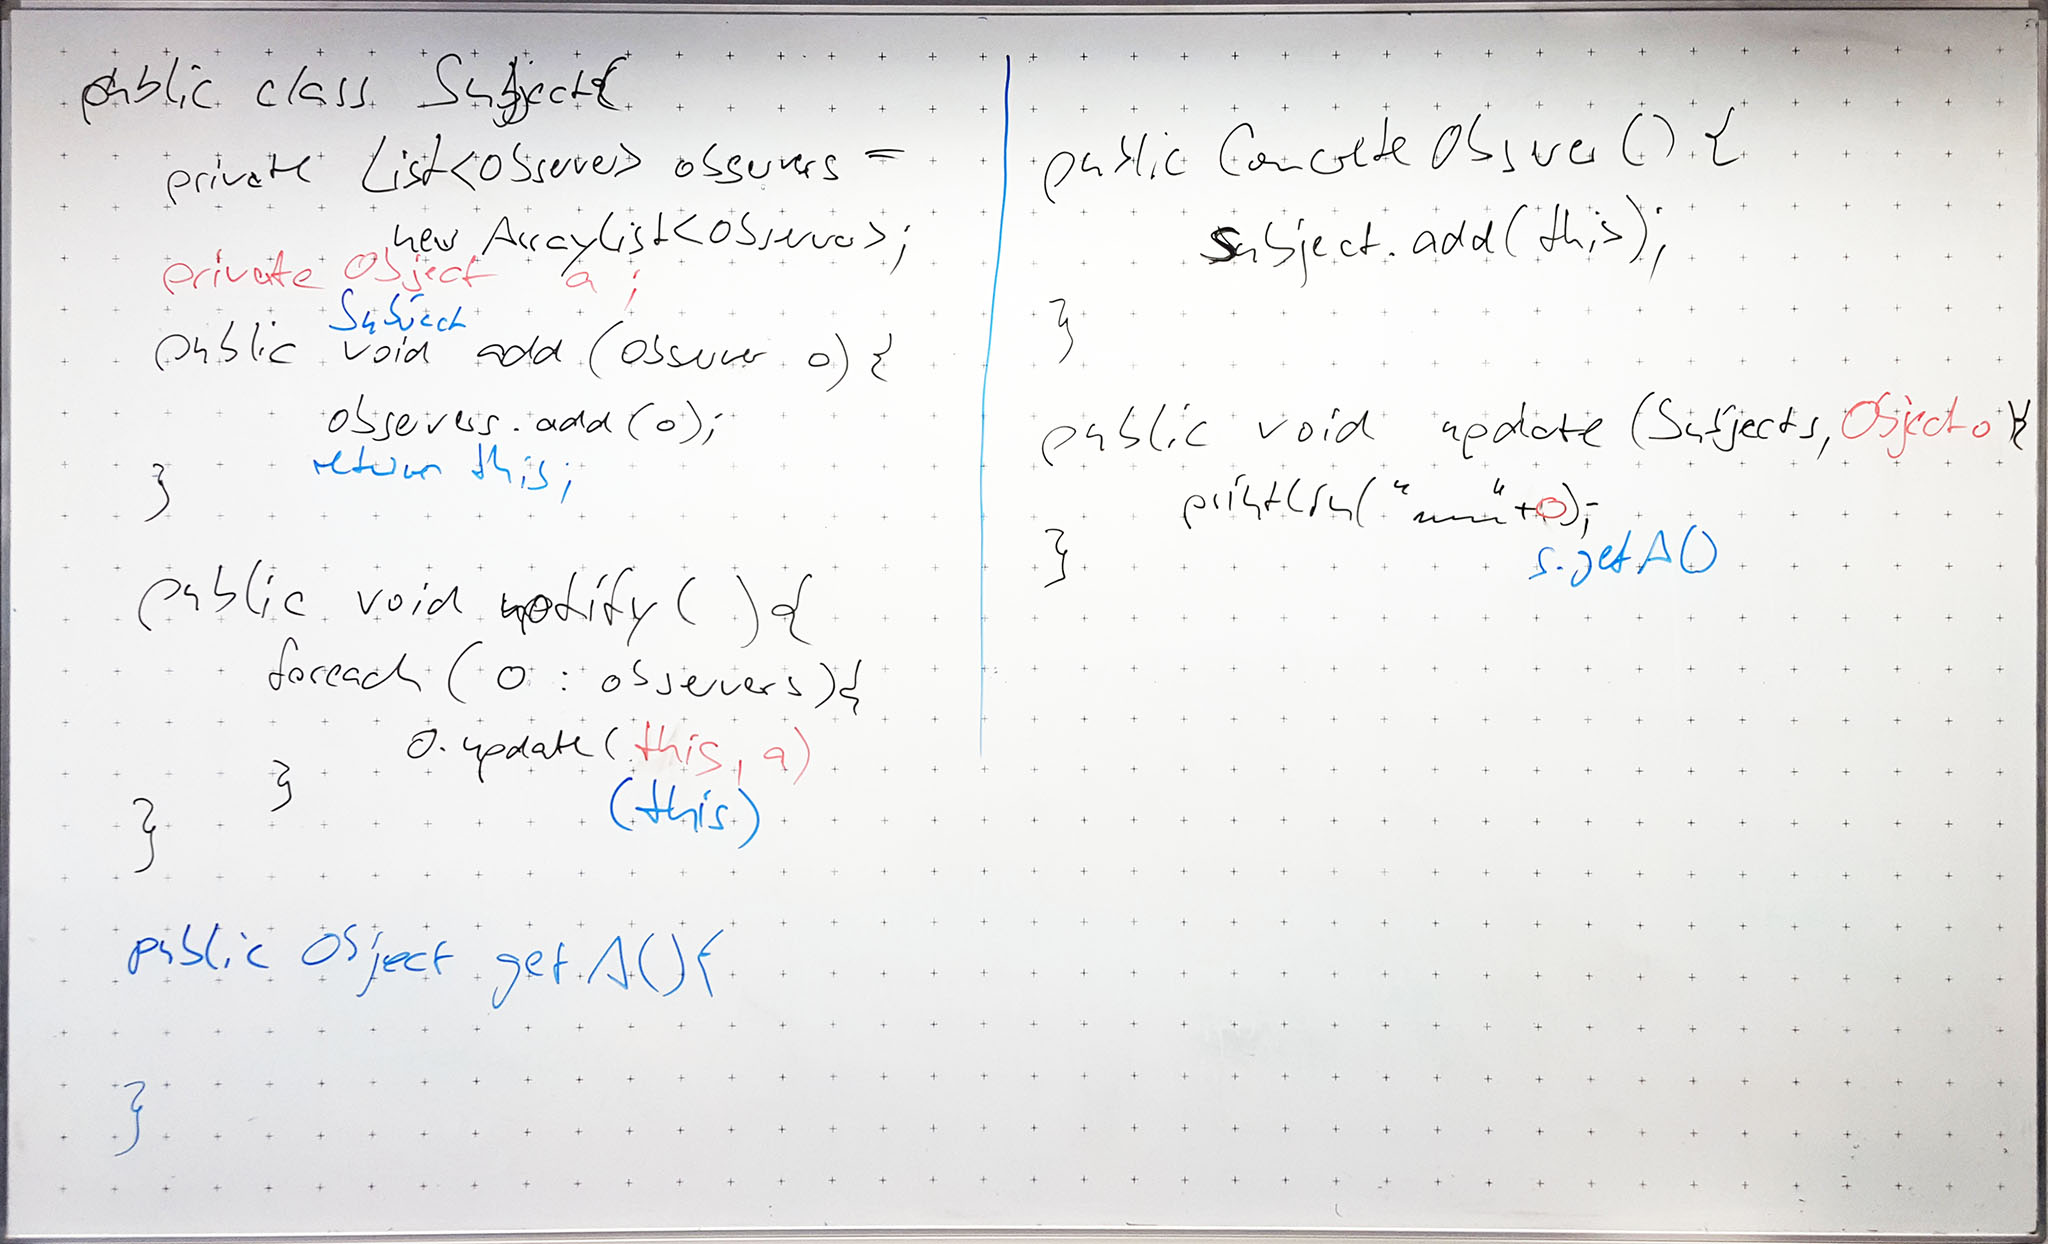 public class Subject{
private List<Observer> observers =
new ArrayList<Observer>;
private Object a;
Subject
public void add (Observer o) {
observers.add(o);
return this;
}
public void notify( ) {
foreach ( o : observers){
o.update(this, a)
}
(this)
}
public Object getA(){
}
public ConcreteObserver () {
subject.add(this);
}
public void update (Subject s, Object o){
println(" "+o);
s.getA()
}